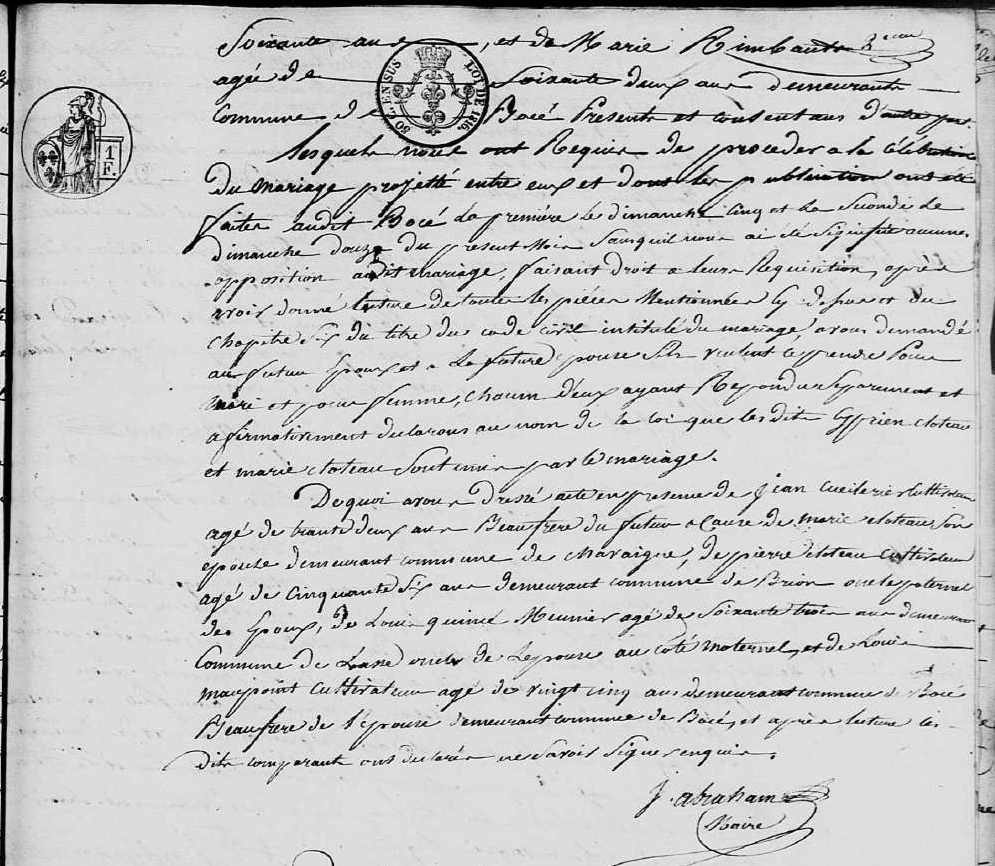 Soixante ans, et de Marie Rimbault
agée de soixante deux ans demeurants
Commune de Bocé Presents et consentans d'autre part
1
F.
80 C. EN SUS
LOI DE 1816.
lesquels nous ont Requis de proceder a la Célébration
Du Mariage projetté entre eux et dont les publications ont été
faites audit Bocé La première le dimanche cinq et la seconde le
dimanche douze du present Mois Sans qu'il nous ai été Signifié aucune
opposition audit mariage, faisant droit a leurs Requisition, après
avoir donné lecture de toutes les pièces Mentionnées cy dessus et du
chapitre six du titre du code civil intitulé du mariage, avons demandé
au futur Epoux et a La future epouse S'ils veulent se prendre Pour
Mari et pour femme, chacun d'eux ayant Répondu Séparement et
afirmativement declarons au nom de la loi que les dits Cyprien cloteau
et marie cloteau Sont unis par le mariage.
De quoi avons Dressé acte en presence de Jean Cultivateur
agé de trante deux ans Beaufrere du futur a Cause de Marie cloteau Son
epouse demeurant commune de Chavaigne, de pierre cloteau Cultivateur
agé de Cinquante Six ans demeurant commune de Brion oncle paternel
des Epoux, de Louis quinié Meunier agé de Soixante trois ans demeurant
Commune de Lasse oncle de L'epouse au coté maternel, et de Louis
maupoint Cultivateur agé de vingt cinq ans demeurant commune de Bocé
Beaufrere de l'epouse demeurant commune de Bocé, et après lecture les
dits comparant ont declarés ne Savoir Signer enquis.
J. abraham
Maire